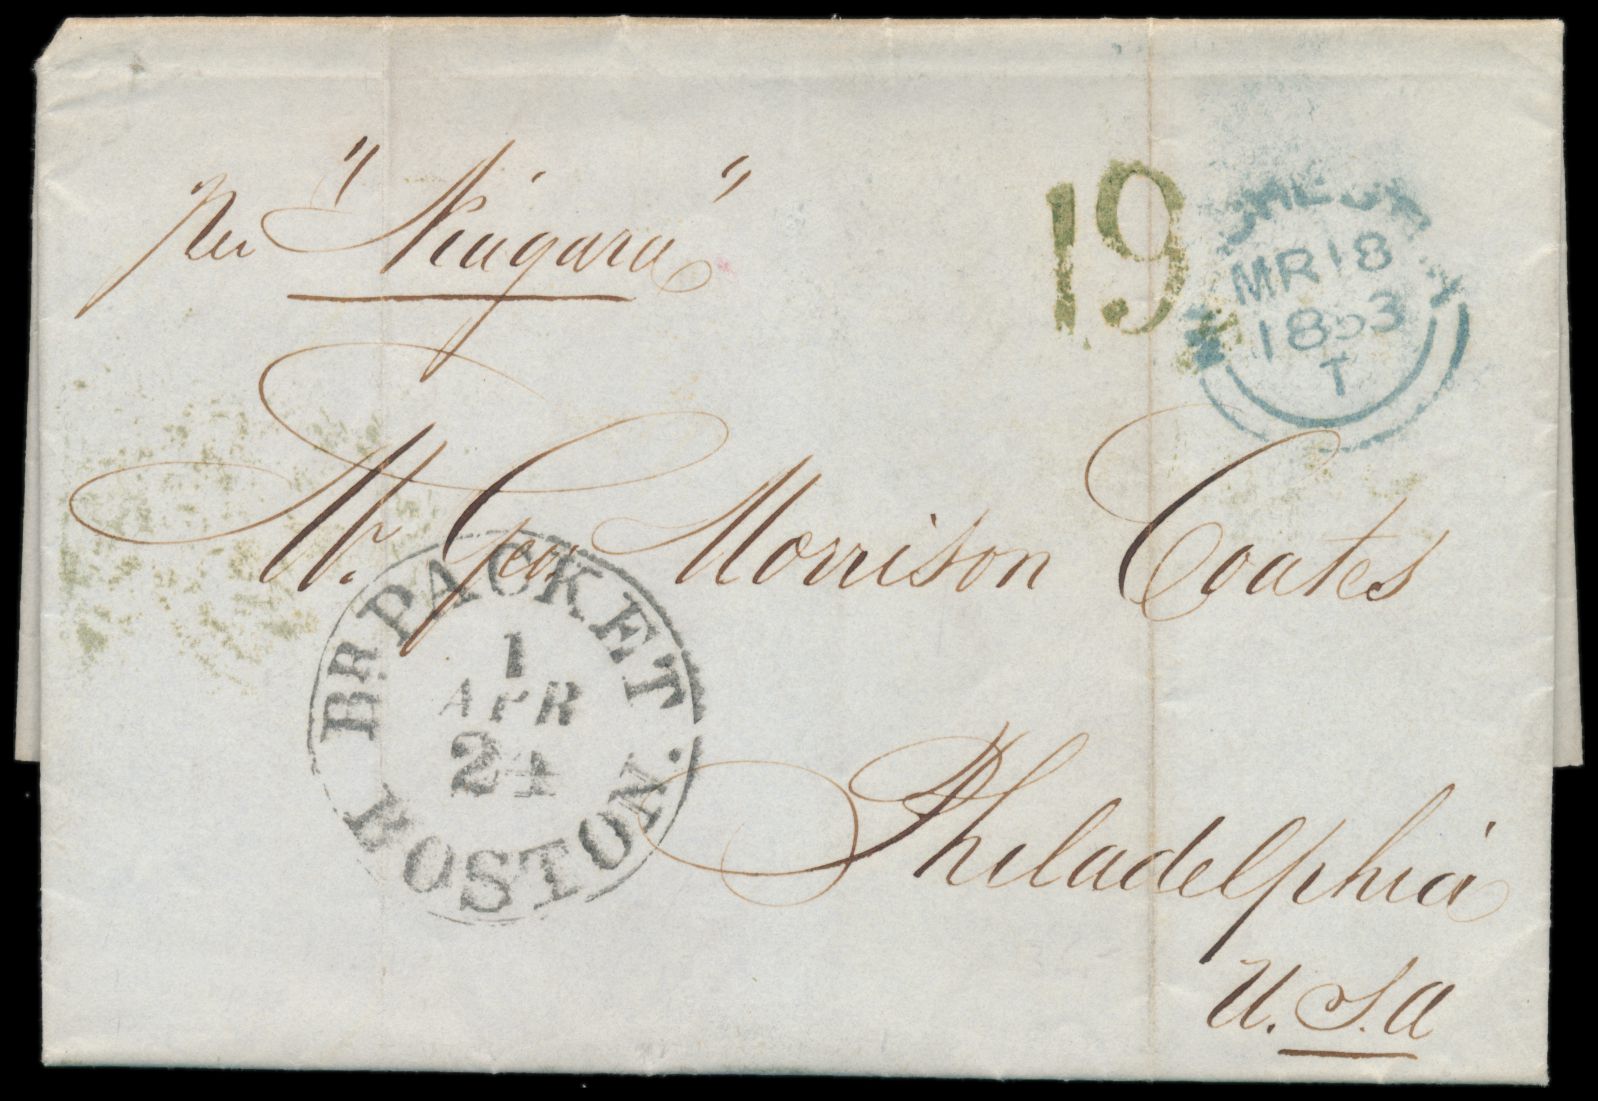 per "Niagara"
19
MR 18
1853
T
Mr. Geo Morrison Coates
BR. PACKET
1
APR
24
BOSTON.
Philadelphia
U.S.A